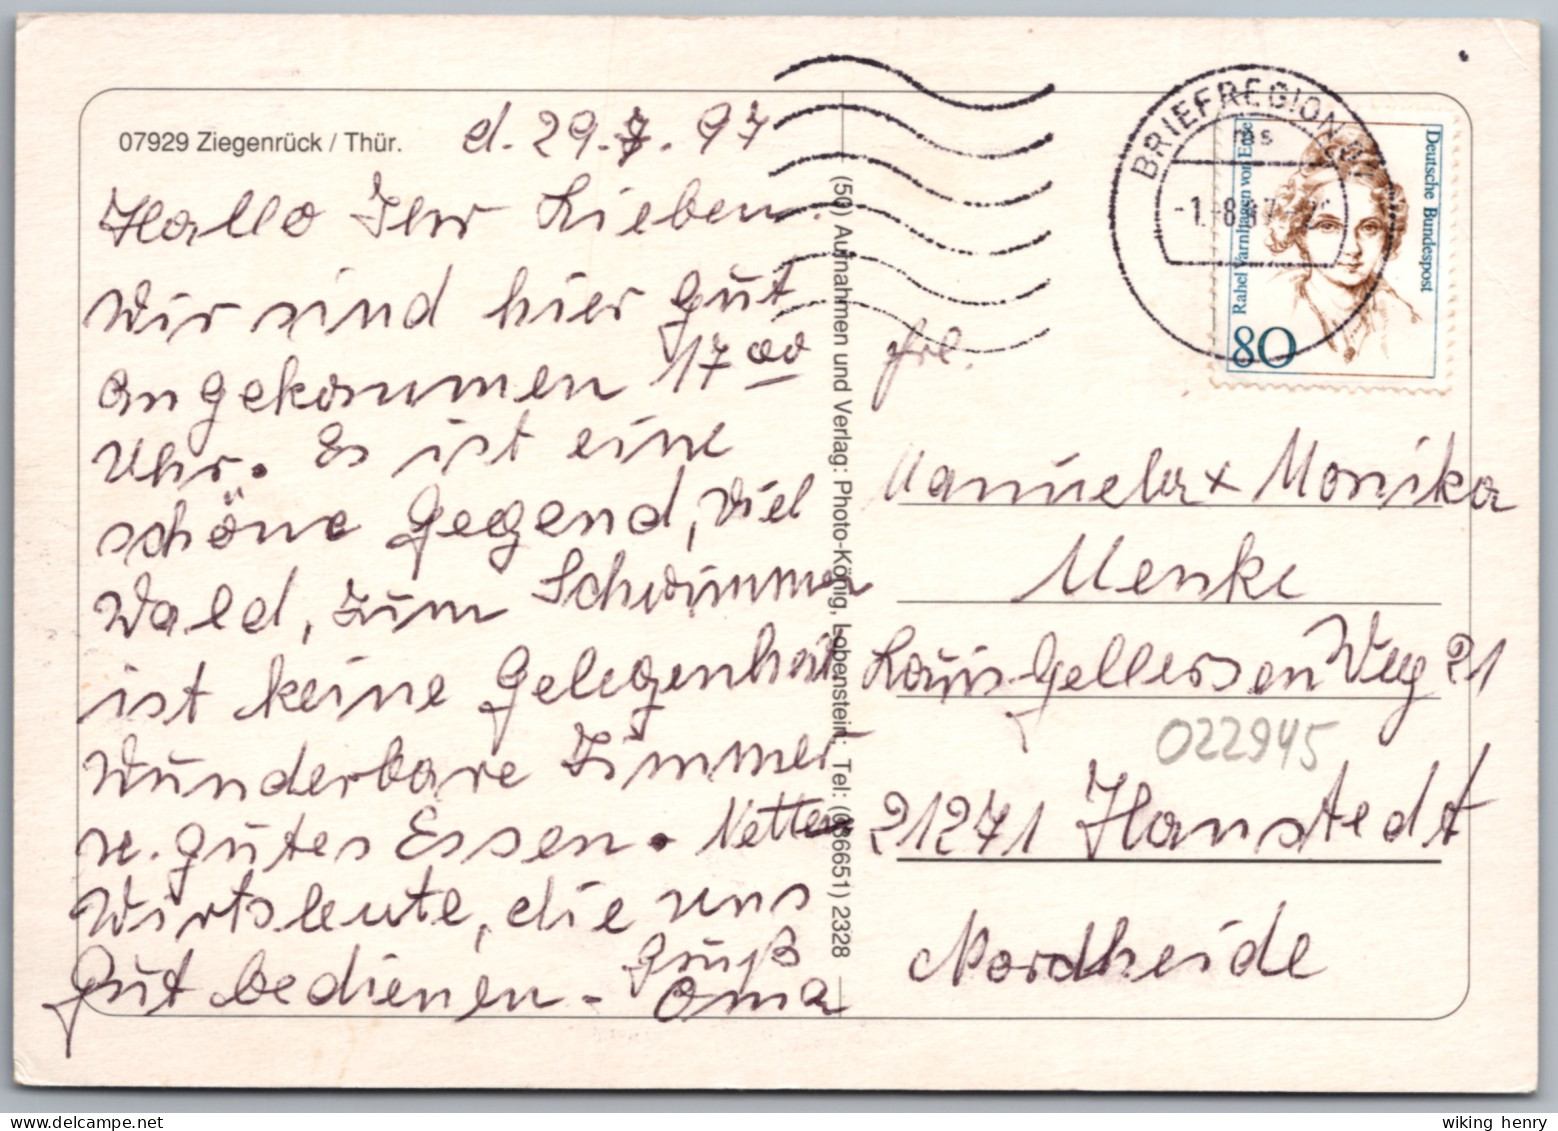 07929 Ziegenrück / Thür.
d. 29.7.97
Hallo Ihr Lieben.
Wir sind hier gut
angekommen 17 00
Uhr. Es ist eine
schöne Gegend, viel
Wald, zum Schwimmen
ist keine Gelegenheit
Wunderbare Zimmer
u. gutes Essen. Nette
Wirtsleute, die uns
gut bedienen - Gruß
Oma
(50) Aufnahmen und Verlag: Photo-König, Lobenstein, Tel: (036651) 2328
BRIEFREGION
ms
-1.-8.97
Deutsche Bundespost
Rahel Varnhagen von Ense
80
Frl.
Manuela + Monika
Menke
Louis-Gellersen Weg 21
022945
21271 Hanstedt
Nordheide
wiking henry